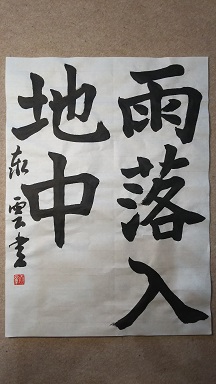 雨落入
地中
雲書